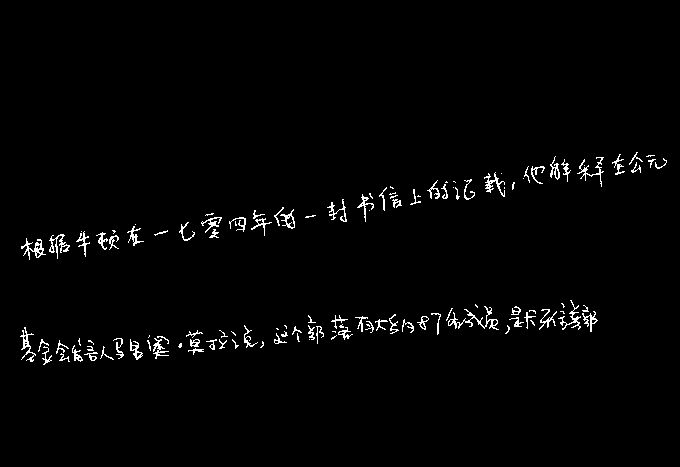 根据牛顿在一七零四年的一封书信上的记载,他解释在公元
基金会发言人马里奥·莫拉说,这个部落有大约87名成员,是